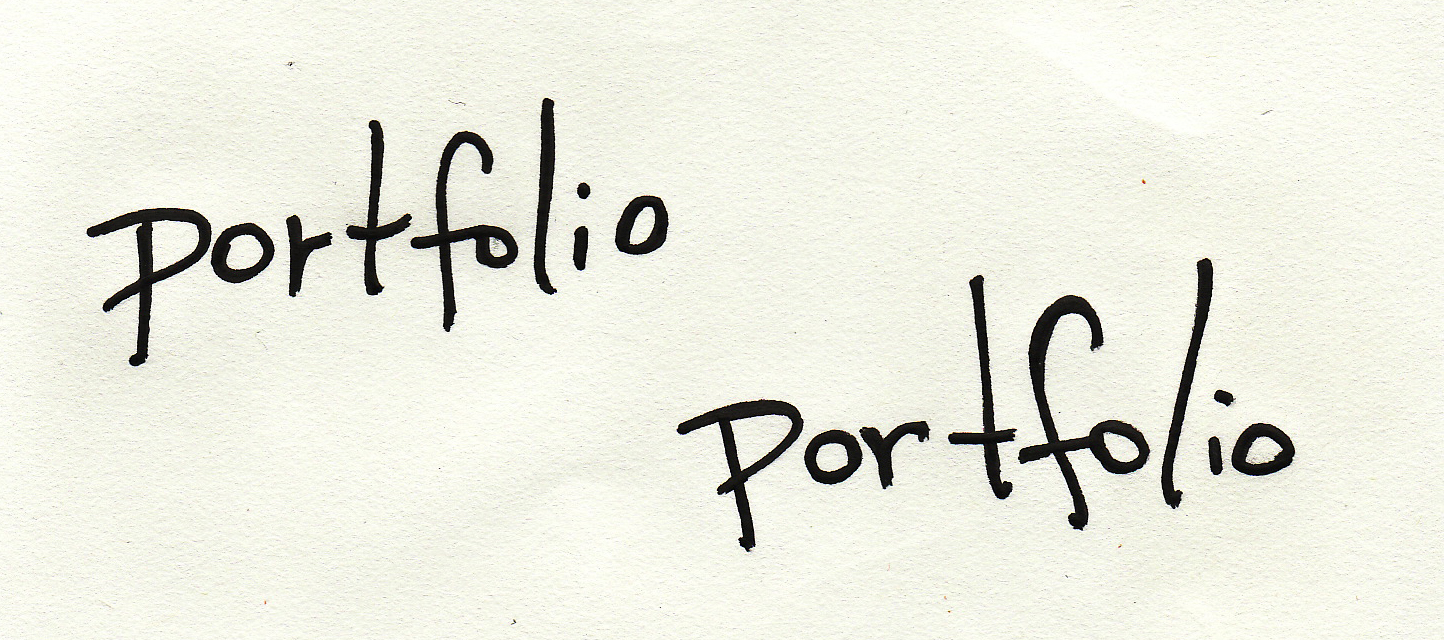 portfolio
portfolio